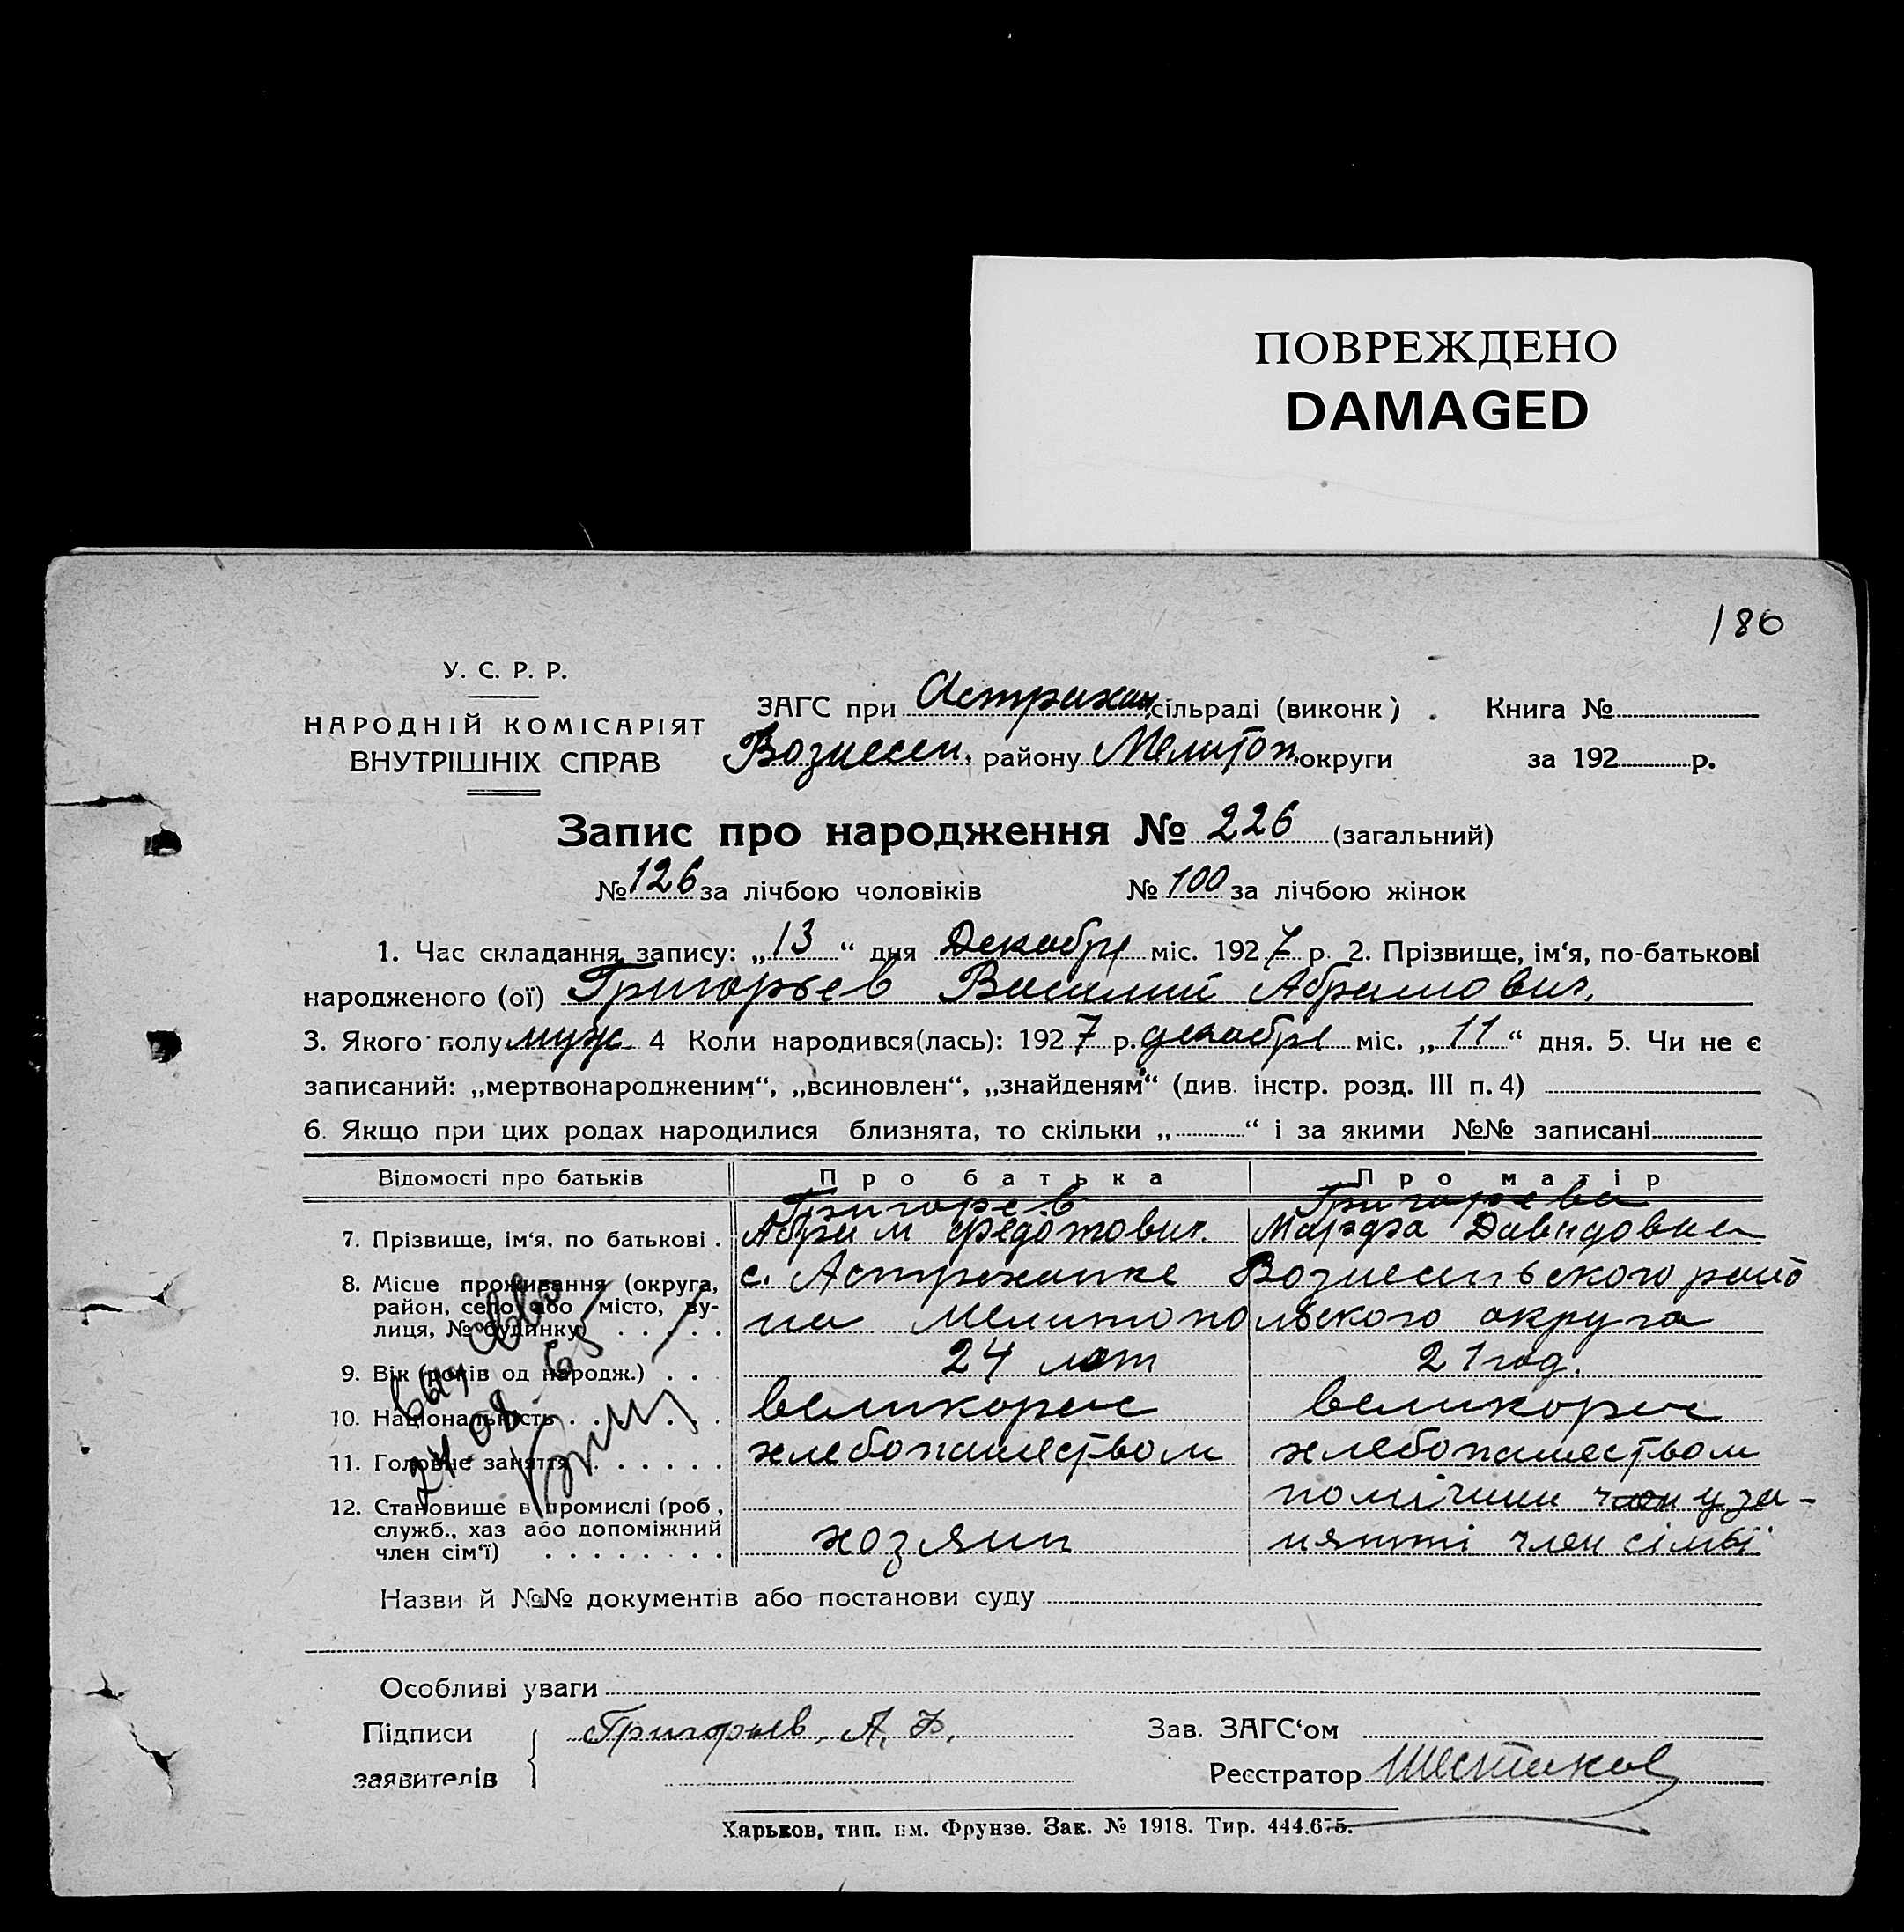 ПОВРЕЖДЕНО
DAMAGED
180
У. С. Р. Р.
НАРОДНІЙ КОМІСАРІЯТ
ВНУТРІШНІХ СПРАВ
ЗАГС при Астрахан. сільраді (виконк) . Книга №
Вознесен. району Мелитоп. округи за 192 р.
Запис про народження № 226 (загальний)
№ 126 за лічбою чоловіків № 100 за лічбою жінок
1. Час складання запису: „13“ дня Декабря міс. 1927 р. 2. Прізвище, ім‘я, по-батькові
народженого (ої) Григорьев Василий Абрамович.
3. Якого полу муж. 4 Коли народився(лась): 1927 р. декабря міс. „11“ дня. 5. Чи не є
записаний: „мертвонародженим“, „всиновлен“, „знайденям“ (див. інстр. розд. III п. 4)
6. Якщо при цих родах народилися близнята, то скільки „ “ і за якими №№ записані
Відомості про батьків Про батька Про матір
Григорьев Григорьева
7. Прізвище, ім‘я, по батькові . Абрам Федотович. Марфа Давидовна
8. Місце проживання (округа, с. Астраханке Вознесенського райо
район, село, або місто, ву-
лиця, № будинку) . . . . . на Мелитопольского округа
9. Вік (років од народж.) . . . 24 лет 21 год.
10. Національність . . . . . великорос великорос
11. Головне заняття . . . . . . хлебопашеством хлебопашеством
12. Становище в промислі (роб., помічник член у за-
служб., хаз або допоміжний
член сім‘ї) . . . . . . . . хозяин нятті член сімьї
24.08 65
Назви й №№ документів або постанови суду
Особливі уваги
Підписи Григорьев, А. Ф. Зав. ЗАГС‘ом
заявителів Реєстратор Шестаков
Харьков, тип. им. Фрунзе. Зак. № 1918. Тир. 444.675.